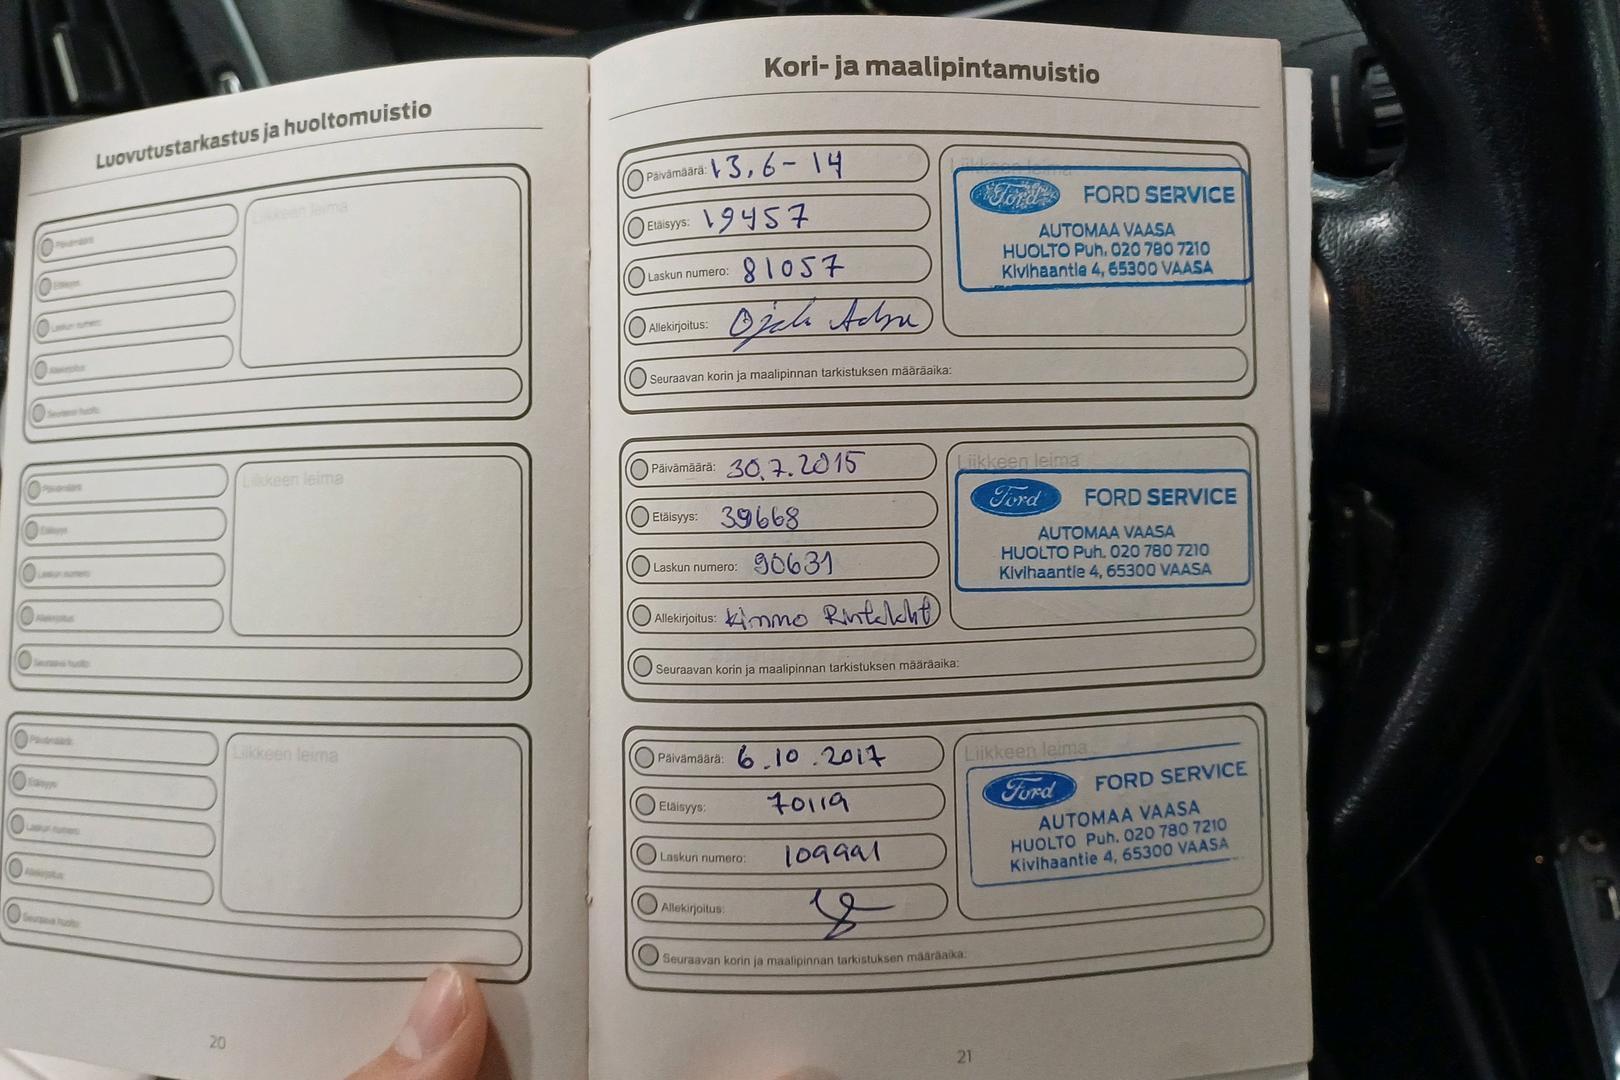 Luovutustarkastus ja huoltomuistio
Päivämäärä:
Liikkeen leima
Etäisyys:
Laskun numero:
Allekirjoitus:
Seuraava huolto:
Päivämäärä:
Liikkeen leima
Etäisyys:
Laskun numero:
Allekirjoitus:
Seuraava huolto:
Päivämäärä:
Liikkeen leima
Etäisyys:
Laskun numero:
Allekirjoitus:
Seuraava huolto:
20
Kori- ja maalipintamuistio
Päivämäärä: 13.6-14
Etäisyys: 19457
Laskun numero: 81057
Allekirjoitus:
Seuraavan korin ja maalipinnan tarkistuksen määräaika:
Liikkeen leima
Ford FORD SERVICE
AUTOMAA VAASA
HUOLTO Puh. 020 780 7210
Kivihaantie 4, 65300 VAASA
Päivämäärä: 30.7.2015
Etäisyys: 39668
Laskun numero: 90631
Allekirjoitus: Kimmo
Seuraavan korin ja maalipinnan tarkistuksen määräaika:
Liikkeen leima
Ford FORD SERVICE
AUTOMAA VAASA
HUOLTO Puh. 020 780 7210
Kivihaantie 4, 65300 VAASA
Päivämäärä: 6.10.2017
Etäisyys: 70119
Laskun numero: 109991
Allekirjoitus:
Seuraavan korin ja maalipinnan tarkistuksen määräaika:
Liikkeen leima
Ford FORD SERVICE
AUTOMAA VAASA
HUOLTO Puh. 020 780 7210
Kivihaantie 4, 65300 VAASA
21